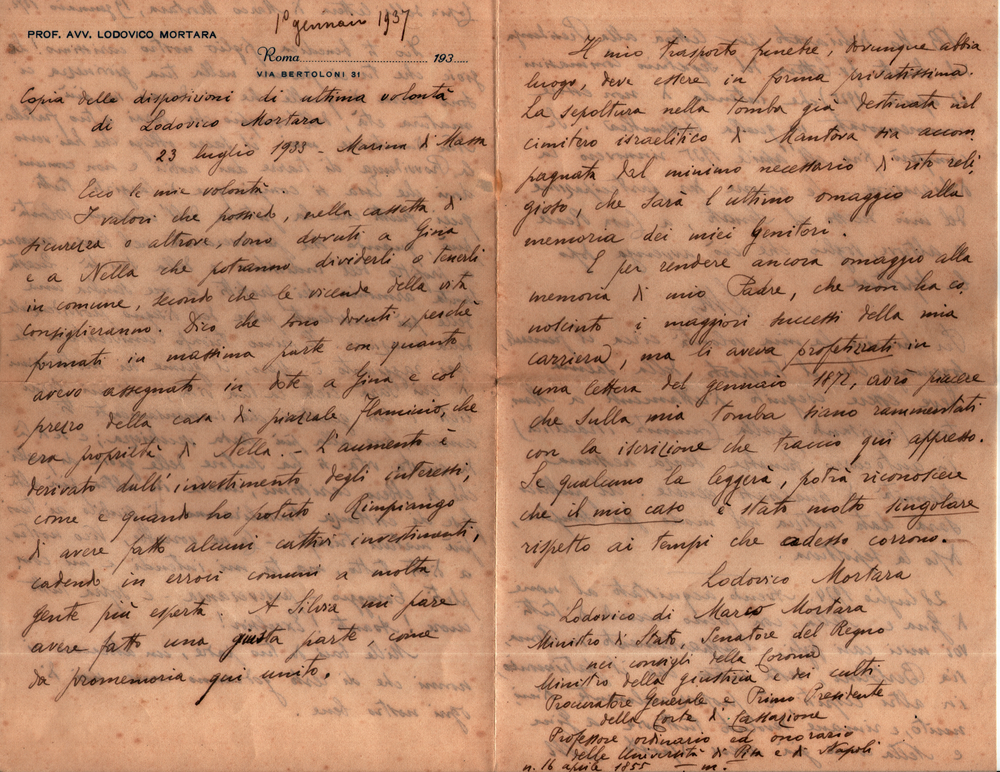 1° gennaio 1937
PROF. AVV. LODOVICO MORTARA
Roma 193
VIA BERTOLONI 31
Copia delle disposizioni di ultima volontà
di Lodovico Mortara
23 luglio 1933 - Marina di Massa
Ecco le mie volontà.
I valori che possiedo, nella cassetta di
sicurezza o altrove, sono dovuti a Gina
e a Nella che potranno dividerli o tenerli
in comune, secondo che le vicende della vita
consiglieranno. Dico che sono dovuti, perchè
formati in massima parte con quanto
avevo assegnato in dote a Gina e col
prezzo della casa di piazzale Flaminio, che
era proprietà di Nella. - L'aumento è
derivato dall'investimento degli interessi,
come e quando ho potuto. Rimpiango
di avere fatto alcuni cattivi investimenti,
cadendo in errori comuni a molta
gente più esperta. A Silvia mi pare
avere fatto una giusta parte, come
da promemoria qui unito.
Il mio trasporto funebre, dovunque abbia
luogo, deve essere in forma privatissima.
La sepoltura nella tomba già destinata nel
cimitero israelitico di Mantova sia accom
pagnata dal minimo necessario di rito reli
gioso, che sarà l'ultimo omaggio alla
memoria dei miei Genitori.
E per rendere ancora omaggio alla
memoria di mio Padre, che non ha co
nosciuto i maggiori successi della mia
carriera, ma li aveva profetizzati in
una lettera del gennaio 1872, avrò piacere
che sulla mia tomba siano rammentati
con la iscrizione che traccio qui appresso.
Se qualcuno la leggerà, potrà riconoscere
che il mio caso è stato molto singolare
rispetto ai tempi che adesso corrono.
Lodovico Mortara
Lodovico di Marco Mortara
Ministro di Stato, Senatore del Regno
nei consigli della Corona
Ministro della giustizia e dei culti
Procuratore Generale e Primo Presidente
della Corte di Cassazione
Professore ordinario ed onorario
delle Università di Pisa e di Napoli
n. 16 aprile 1855 m.